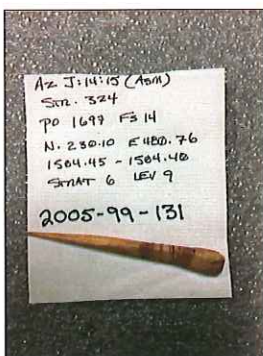 Az J:14:15 (ASM)
STR. 324
PD 1697 FS 14
N. 230.10 E 480.76
1504.45 - 1504.40
STRAT 6 LEV 9
2005-99-131